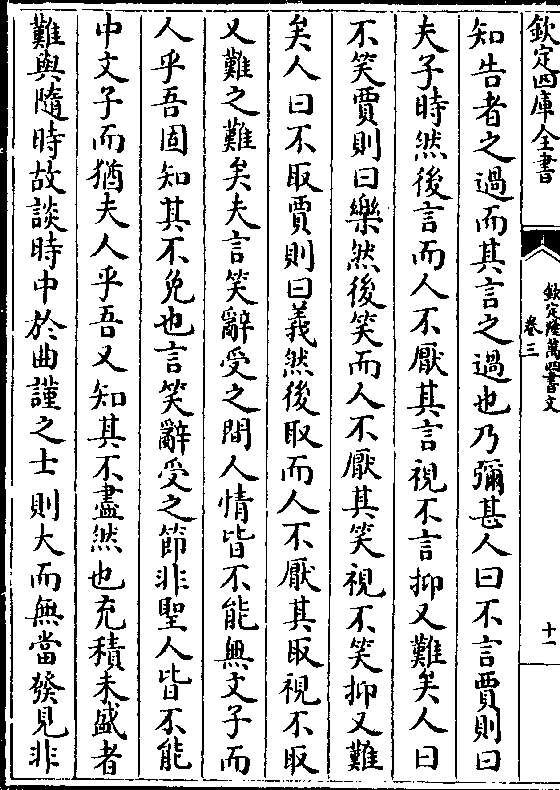 欽定四庫全書
欽定隆萬四書文
卷三
十一
知告者之過而其言之過也乃彌甚人曰不言賈則曰
夫子時然後言而人不厭其言視不言抑又難矣人曰
不笑賈則曰樂然後笑而人不厭其笑視不笑抑又難
矣人曰不取賈則曰義然後取而人不厭其取視不取
又難之難矣夫言笑辭受之間人情皆不能無文子而
人乎吾固知其不免也言笑辭受之節非聖人皆不能
中文子而猶夫人乎吾又知其不盡然也充積未盛者
難與隨時故談時中於曲謹之士則大而無當發見非